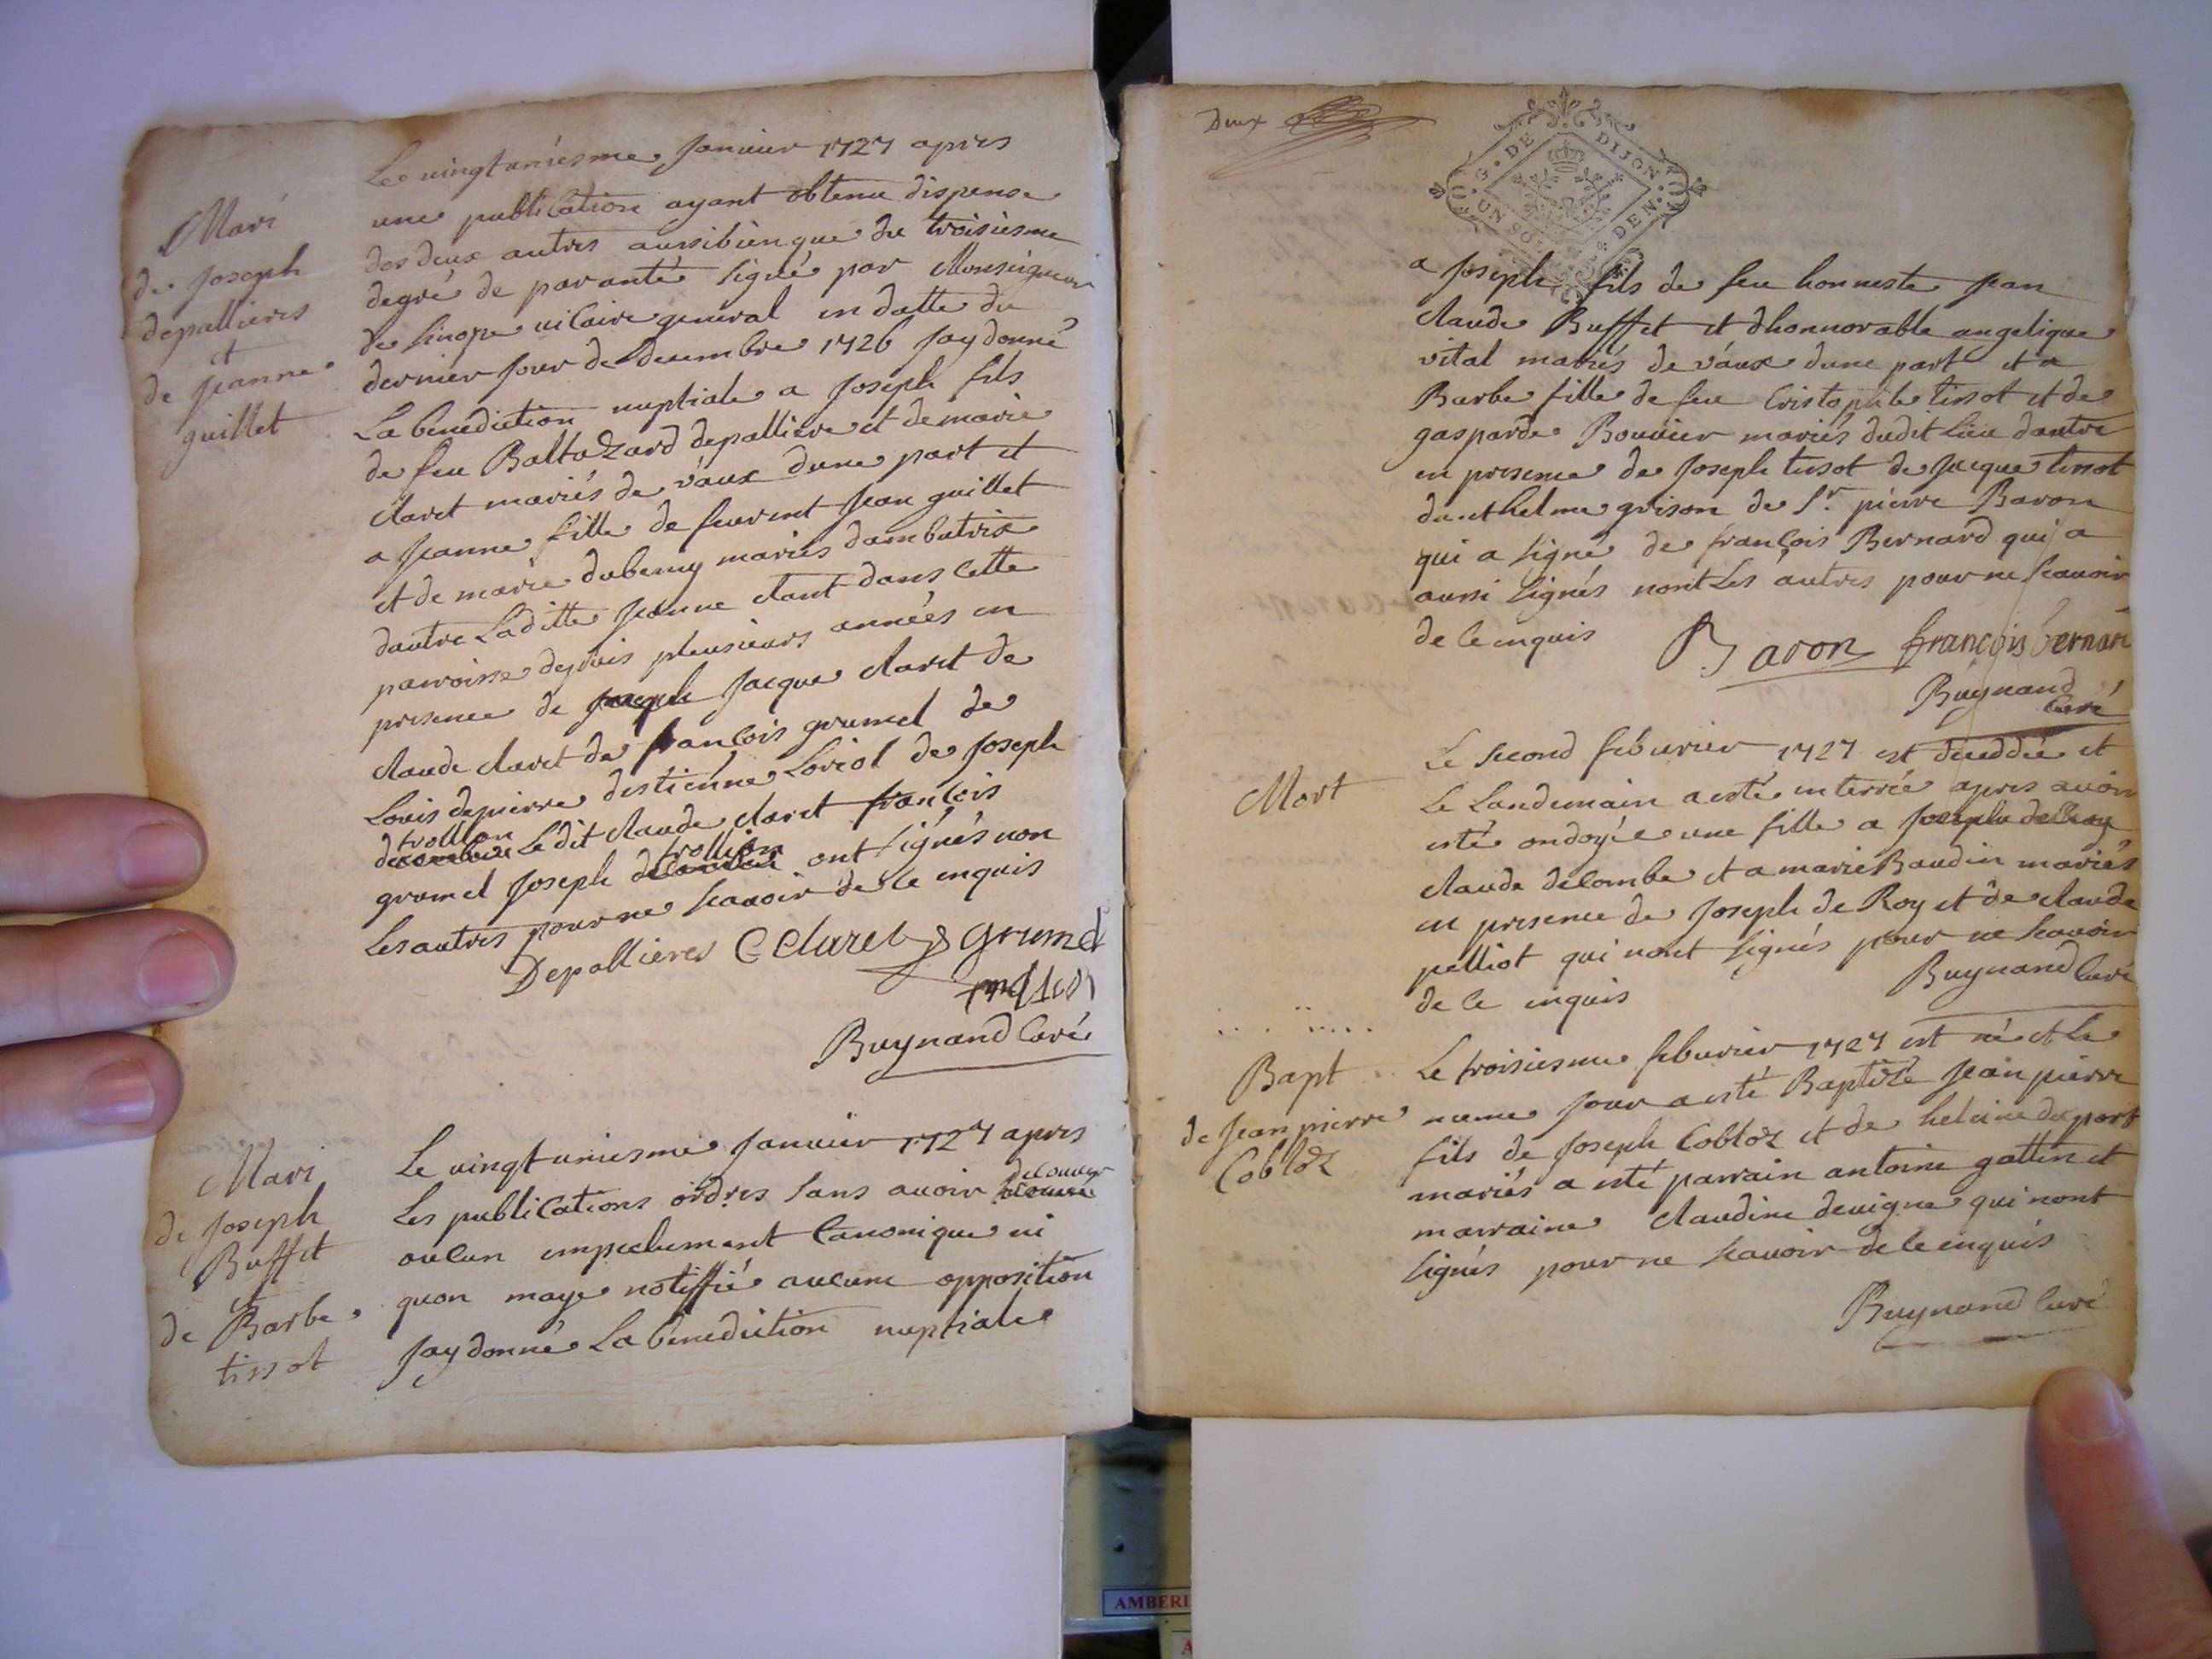 Mari
de Joseph
depallieres
et
de Jeanne
guillet
Le vingtuniesme Janvier 1727 apres
une publication ayant obtenu dispense
des deux autres aussibienque du troisiesme
degré de paranté signé par Monseigneur
de Sinope vicaire general en datte du
dernier Jour de decembre 1726 Jay donné
La benediction nuptiale a Joseph fils
de feu Baltazard depalliere et de marie
claret mariés de vaux dune part et
a Jeanne fille de feu Jean guillet
et de marie dubemy mariés dambutrix
dautre Laditte Jeanne etant dans cette
parroisse depuis plusieurs années en
presence de Jacque claret de
claude claret de françois grumel de
Louis depierre destienne Loriol de Joseph
trollion
Ledit claude claret françois
trollion
grumel Joseph ont signés non
Les autres pour ne scavoir de ce enquis
Depallieres C Claret grumel
Buynand Curé
Mari
de Joseph
Buffet
et
de Barbe
tissot
Le vingtuniesme Janvier 1727 apres
decouvert
Les publications ordres sans avoir
aucun empechement Canonique ni
quon maye notiffié aucune opposition
Jay donné La benediction nuptiale
Deux
G. DE DIJON
UN SOL DEN.
a Joseph fils de feu honneste Jean
claude Buffet et dhonnorable angelique
vital mariés de vaux dune part et a
Barbe fille de feu Cristophle tissot et de
gasparde Bouvier mariés dudit Lieu dautre
en presence de Joseph tissot de Jacque tissot
danthelme grison de Sr. pierre Baron
qui a signé de françois Bernard qui a
aussi signés nont Les autres pour ne scavoir
de ce enquis
Baron françois bernard
Buynand
Curé
Mort
Le second febvrier 1727 est deceddée et
Le Landemain a esté enterrée apres avoir
esté ondoyée une fille a Joseph de Roy
claude delombe et a marie Baudin mariés
en presence de Joseph de Roy et de claude
pelliot qui nont signés pour ne scavoir
de ce enquis
Buynand Curé
Bapt
de Jean pierre
Cobloz
Le troisiesme febvrier 1727 est né et Le
meme Jour a esté Baptizé Jean pierre
fils de Joseph Cobloz et de heleine duport
mariés a esté parrain antoine gattin et
marraine claudine devigne qui nont
signés pour ne scavoir de ce enquis
Buynand Curé
AMBERI